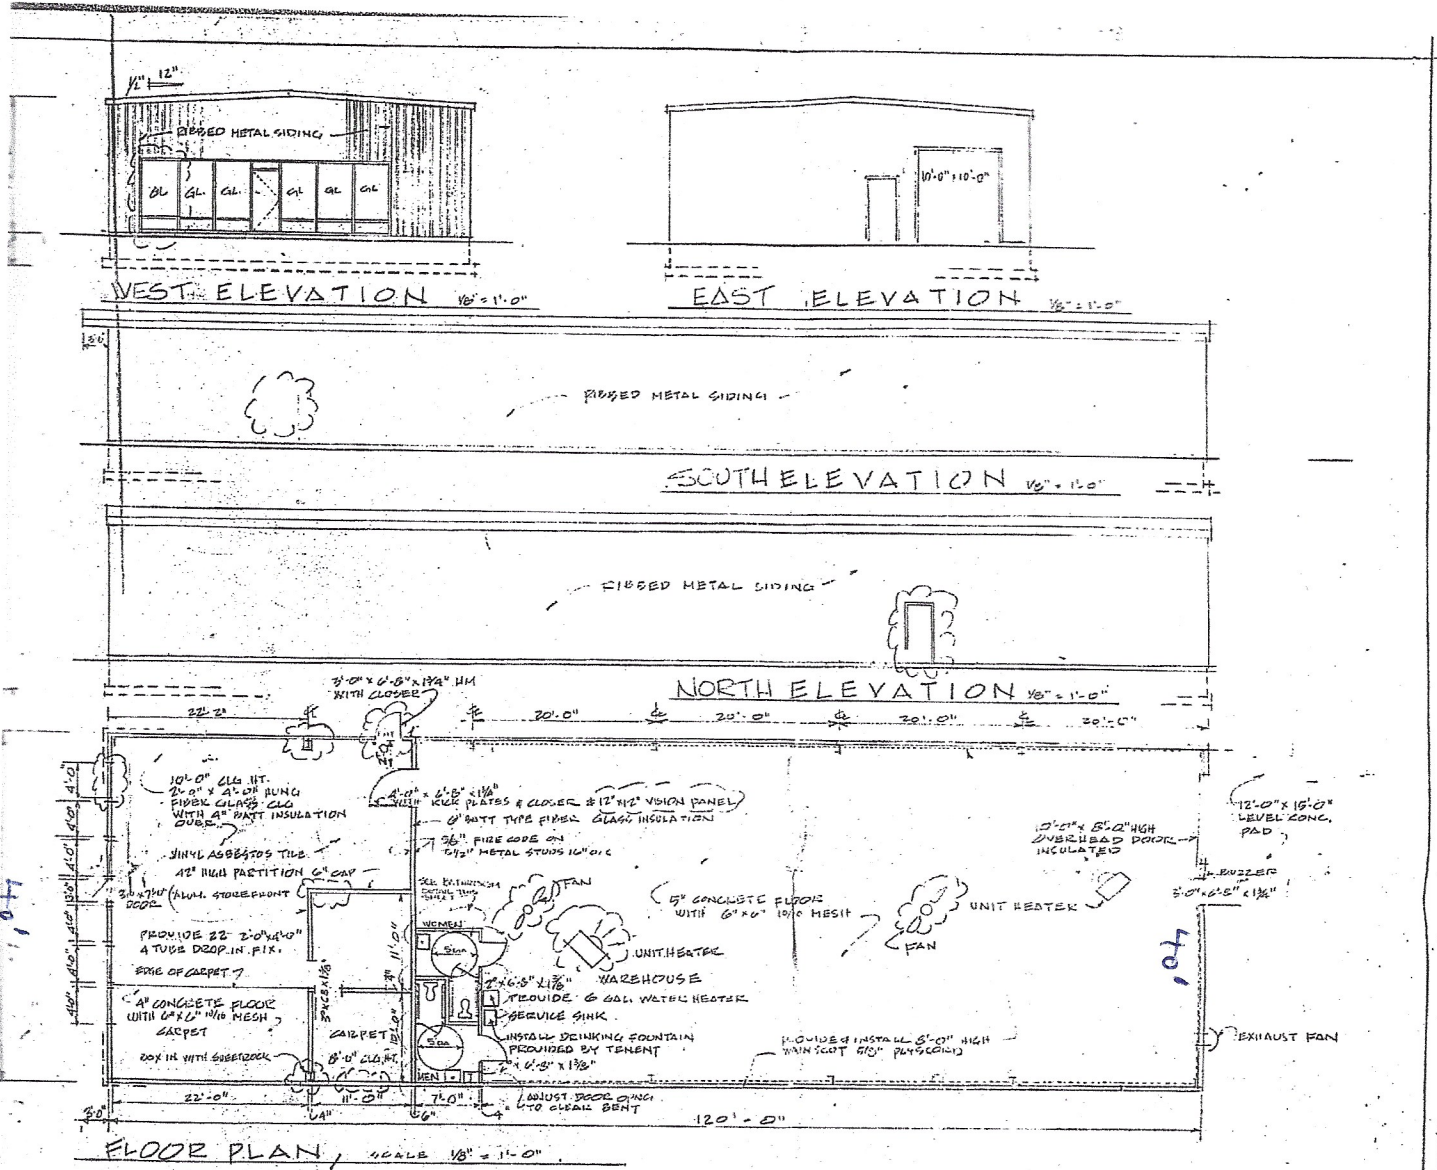 1/2" 12"
RIBBED METAL SIDING
GL GL. GL. GL GL GL
WEST ELEVATION 1/8" = 1'-0"
10'-0" x 10'-0"
EAST ELEVATION 1/8" = 1'-0"
3'-0"
RIBBED METAL SIDING
SOUTH ELEVATION 1/8" = 1'-0"
RIBBED METAL SIDING
NORTH ELEVATION 1/8" = 1'-0"
3'-0" x 6'-8" x 1 3/4" HM
WITH CLOSER
22'-2"
20'-0"
20'-0"
20'-0"
20'-0"
10'-0" CLG. HT.
2'-0" x 4'-0" HUNG
FIBER GLASS CLG
WITH 4" BATT INSULATION
OVER
VINYL ASBESTOS TILE
42" HIGH PARTITION 6" CAP
3'-0" x 7'-0" ALUM. STOREFRONT
DOOR
PROVIDE 22 2'-0" x 4'-0"
4 TUBE DROP IN FIX.
EDGE OF CARPET
4" CONCRETE FLOOR
WITH 6" x 6" 10/10 MESH
CARPET
BOX IN WITH SHEETROCK
4'-0" x 6'-8" x 1 3/4"
WITH KICK PLATES & CLOSER & 12"x12" VISION PANEL
6" BATT TYPE FIBER GLASS INSULATION
5/8" FIRE CODE ON
METAL STUDS 16" O.C
SEE BATHROOM
DETAIL THIS
SHEET
FAN
WOMEN
5' DIA
11'-0"
4"
CARPET
8'-0" CLG. HT.
5' DIA
MEN
UNIT HEATER
WAREHOUSE
2' x 6'-8" x 1 3/8"
PROVIDE 6 GAL. WATER HEATER
SERVICE SINK
INSTALL DRINKING FOUNTAIN
PROVIDED BY TENENT
2' x 6'-8" x 1 3/8"
ADJUST DOOR OPNG
TO CLEAR BENT
5" CONCRETE FLOOR
WITH 6" x 6" 10/10 MESH
FAN
UNIT HEATER
10'-0" x 8'-0" HIGH
OVERHEAD DOOR
INSULATED
12'-0" x 15'-0"
LEVEL CONC.
PAD
BUZZER
3'-0" x 6'-8" x 1 3/4"
PROVIDE & INSTALL 8'-0" HIGH
WAINSCOT 5/8" PLYSCORD
EXHAUST FAN
4'-0"
4'-0"
4'-0"
4'-0"
4'-0"
4'-0"
40'
40'
3'-0"
22'-0"
4"
11'-0"
6"
7'-0"
4"
120'-0"
FLOOR PLAN, SCALE 1/8" = 1'-0"